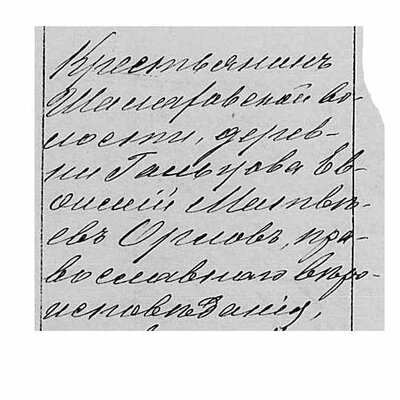 Крестьянинъ
Шаматовской во-
лости, дерев-
ни Гальцова Ев-
фимій Матвѣ-
евъ Орловъ, пра-
вославнаго вѣро-
исповѣданія,